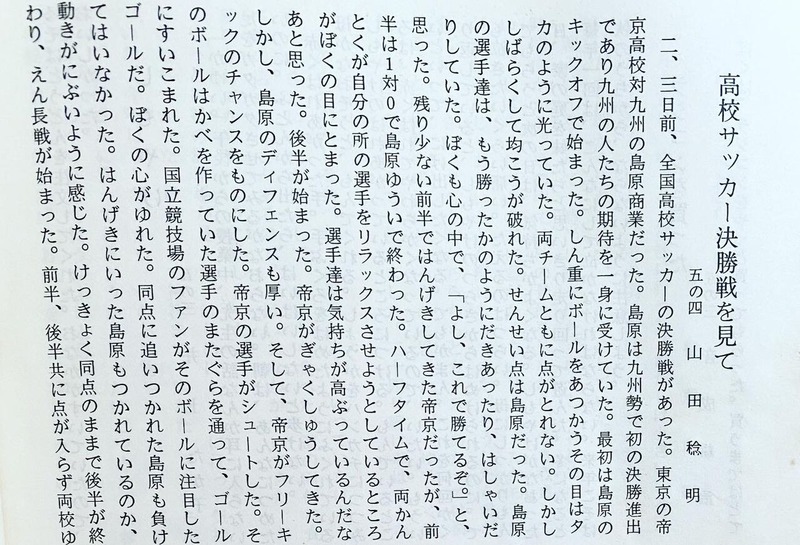 高校サッカー決勝戦を見て
五の四 山田稔明
二、三日前、全国高校サッカーの決勝戦があった。東京の帝
京高校対九州の島原商業だった。島原は九州勢で初の決勝進出
であり九州の人たちの期待を一身に受けていた。最初は島原の
キックオフで始まった。しん重にボールをあつかうその目はタ
カのように光っていた。両チームともに点がとれない。しかし
しばらくして均こうが破れた。せんせい点は島原だった。島原
の選手達は、もう勝ったかのようにだきあったり、はしゃいだ
りしていた。ぼくも心の中で、「よし、これで勝てるぞ。」と、
思った。残り少ない前半ではんげきしてきた帝京だったが、前
半は1対0で島原ゆういで終わった。ハーフタイムで、両かん
とくが自分の所の選手をリラックスさせようとしているところ
がぼくの目にとまった。選手達は気持ちが高ぶっているんだな
あと思った。後半が始まった。帝京がぎゃくしゅうしてきた。
しかし、島原のディフェンスも厚い。そして、帝京がフリーキ
ックのチャンスをものにした。帝京の選手がシュートした。そ
のボールはかべを作っていた選手のまたぐらを通って、ゴール
にすいこまれた。国立競技場のファンがそのボールに注目した
ゴールだ。ぼくの心がゆれた。同点に追いつかれた島原も負け
てはいなかった。はんげきにいった島原もつかれているのか、
動きがにぶいように感じた。けっきょく同点のままで後半が終
わり、えん長戦が始まった。前半、後半共に点が入らず両校ゆ